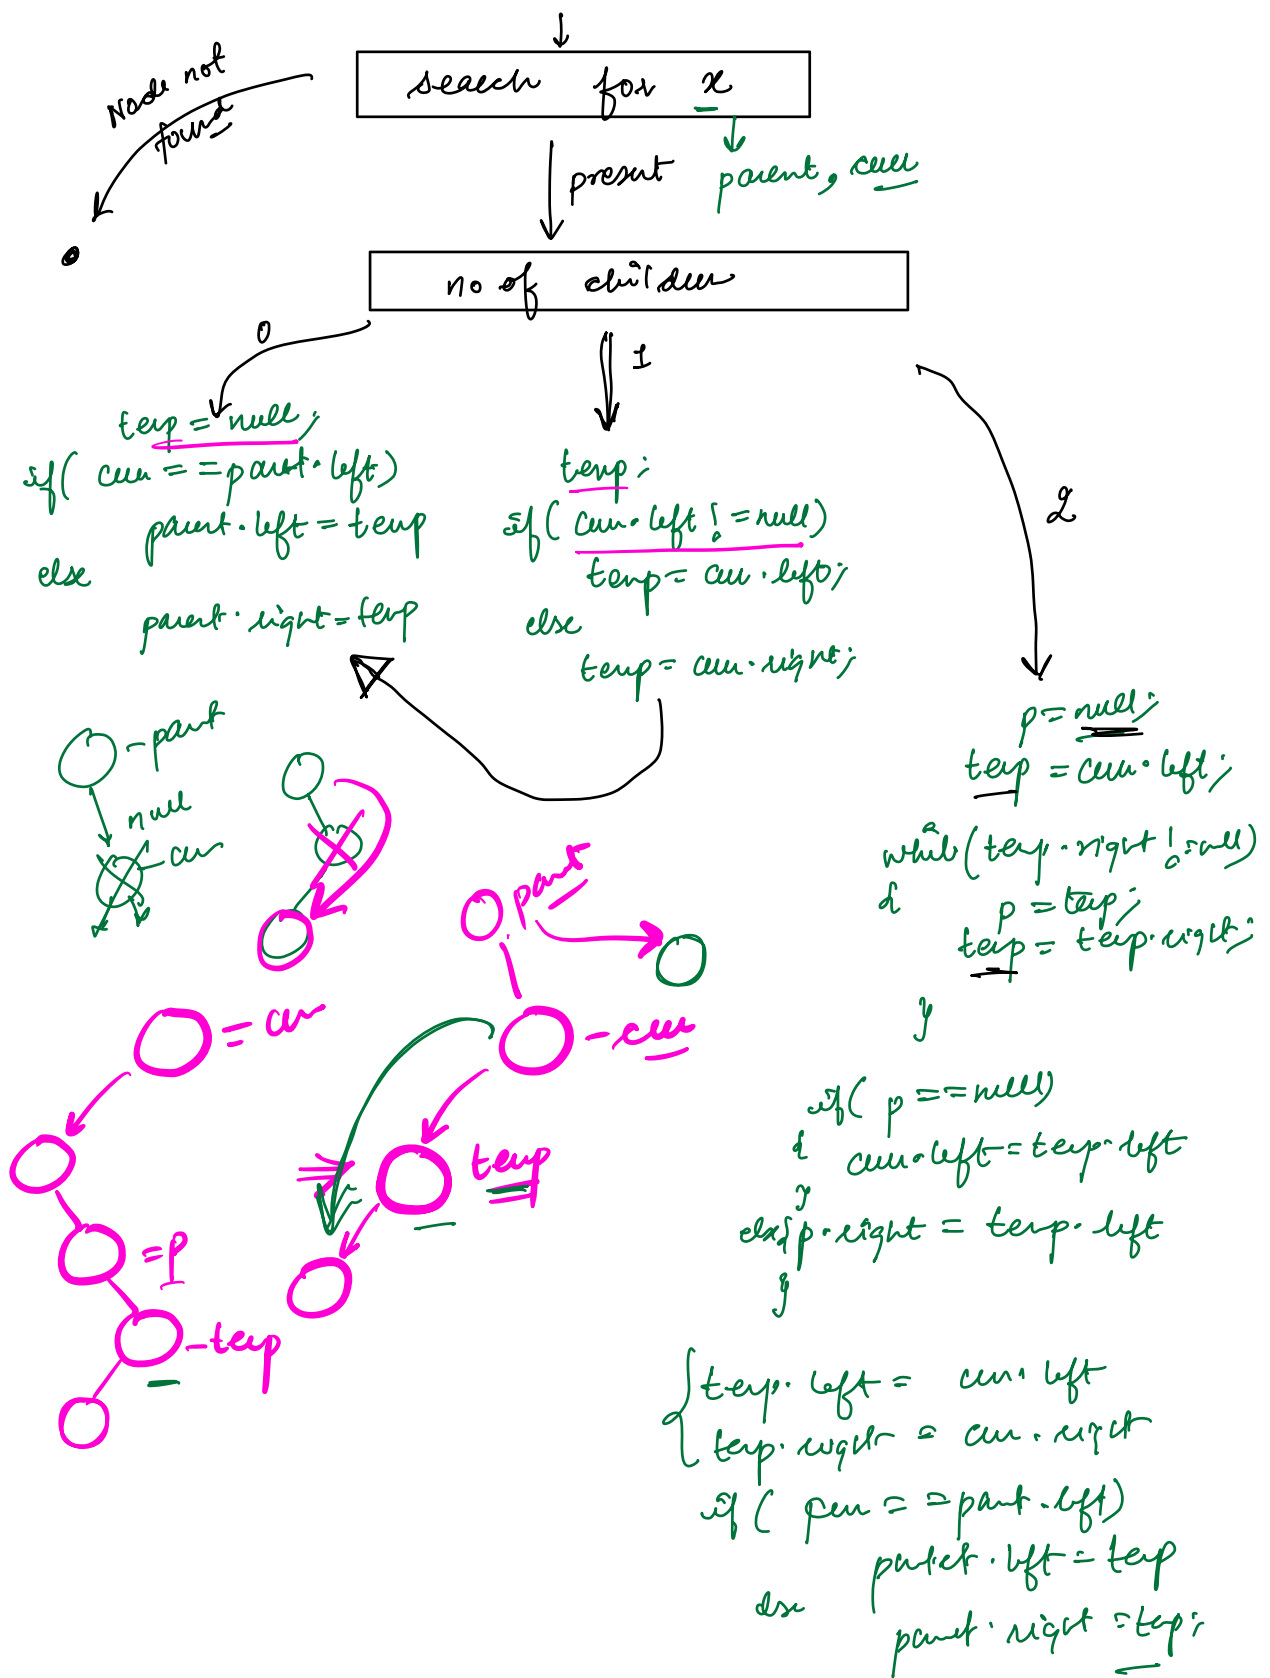 search for x
Node not
found
present
parent, curr
no of children
0
1
2
temp = null;
if( curr == parent.left)
parent.left = temp
else
parent.right = temp
temp;
if( curr.left != null)
temp = curr.left;
else
temp = curr.right;
p = null;
temp = curr.left;
while(temp.right != null)
{
p = temp;
temp = temp.right;
}
if( p == null)
{
curr.left = temp.left
}
else{ p.right = temp.left
}
{ temp.left = curr.left
temp.right = curr.right
if( curr == parent.left)
parent.left = temp
else
parent.right = temp;
- parent
null
- curr
parent
= curr
- curr
temp
= p
- temp